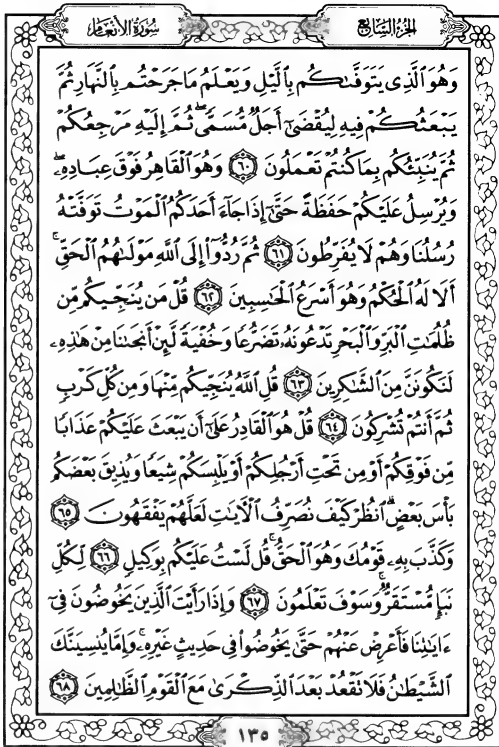 سُورَةُ الأَنْعَام
الجُزْءُ السَّابِعُ
وَهُوَ ٱلَّذِى يَتَوَفَّىٰكُم بِٱلَّيْلِ وَيَعْلَمُ مَا جَرَحْتُم بِٱلنَّهَارِ ثُمَّ
يَبْعَثُكُمْ فِيهِ لِيُقْضَىٰٓ أَجَلٌ مُّسَمًّى ۖ ثُمَّ إِلَيْهِ مَرْجِعُكُمْ
ثُمَّ يُنَبِّئُكُم بِمَا كُنتُمْ تَعْمَلُونَ ﴿٦٠﴾ وَهُوَ ٱلْقَاهِرُ فَوْقَ عِبَادِهِۦ ۖ
وَيُرْسِلُ عَلَيْكُمْ حَفَظَةً حَتَّىٰٓ إِذَا جَآءَ أَحَدَكُمُ ٱلْمَوْتُ تَوَفَّتْهُ
رُسُلُنَا وَهُمْ لَا يُفَرِّطُونَ ﴿٦١﴾ ثُمَّ رُدُّوٓا۟ إِلَى ٱللَّهِ مَوْلَىٰهُمُ ٱلْحَقِّ ۚ
أَلَا لَهُ ٱلْحُكْمُ وَهُوَ أَسْرَعُ ٱلْحَـٰسِبِينَ ﴿٦٢﴾ قُلْ مَن يُنَجِّيكُم مِّن
ظُلُمَـٰتِ ٱلْبَرِّ وَٱلْبَحْرِ تَدْعُونَهُۥ تَضَرُّعًا وَخُفْيَةً لَّئِنْ أَنجَىٰنَا مِنْ هَـٰذِهِۦ
لَنَكُونَنَّ مِنَ ٱلشَّـٰكِرِينَ ﴿٦٣﴾ قُلِ ٱللَّهُ يُنَجِّيكُم مِّنْهَا وَمِن كُلِّ كَرْبٍ
ثُمَّ أَنتُمْ تُشْرِكُونَ ﴿٦٤﴾ قُلْ هُوَ ٱلْقَادِرُ عَلَىٰٓ أَن يَبْعَثَ عَلَيْكُمْ عَذَابًا
مِّن فَوْقِكُمْ أَوْ مِن تَحْتِ أَرْجُلِكُمْ أَوْ يَلْبِسَكُمْ شِيَعًا وَيُذِيقَ بَعْضَكُم
بَأْسَ بَعْضٍ ۗ ٱنظُرْ كَيْفَ نُصَرِّفُ ٱلْـَٔايَـٰتِ لَعَلَّهُمْ يَفْقَهُونَ ﴿٦٥﴾
وَكَذَّبَ بِهِۦ قَوْمُكَ وَهُوَ ٱلْحَقُّ ۚ قُل لَّسْتُ عَلَيْكُم بِوَكِيلٍ ﴿٦٦﴾ لِّكُلِّ
نَبَإٍ مُّسْتَقَرٌّ ۚ وَسَوْفَ تَعْلَمُونَ ﴿٦٧﴾ وَإِذَا رَأَيْتَ ٱلَّذِينَ يَخُوضُونَ فِىٓ
ءَايَـٰتِنَا فَأَعْرِضْ عَنْهُمْ حَتَّىٰ يَخُوضُوا۟ فِى حَدِيثٍ غَيْرِهِۦ ۚ وَإِمَّا يُنسِيَنَّكَ
ٱلشَّيْطَـٰنُ فَلَا تَقْعُدْ بَعْدَ ٱلذِّكْرَىٰ مَعَ ٱلْقَوْمِ ٱلظَّـٰلِمِينَ ﴿٦٨﴾
١٣٥